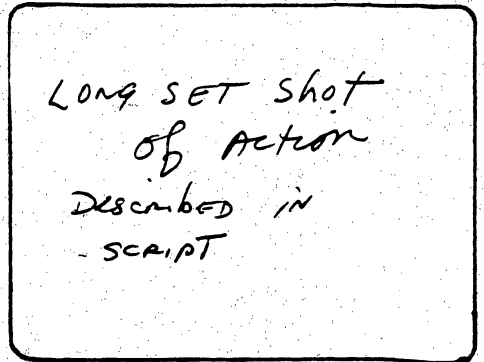 LONG SET Shot
of Action
DescribED IN
SCRIPT